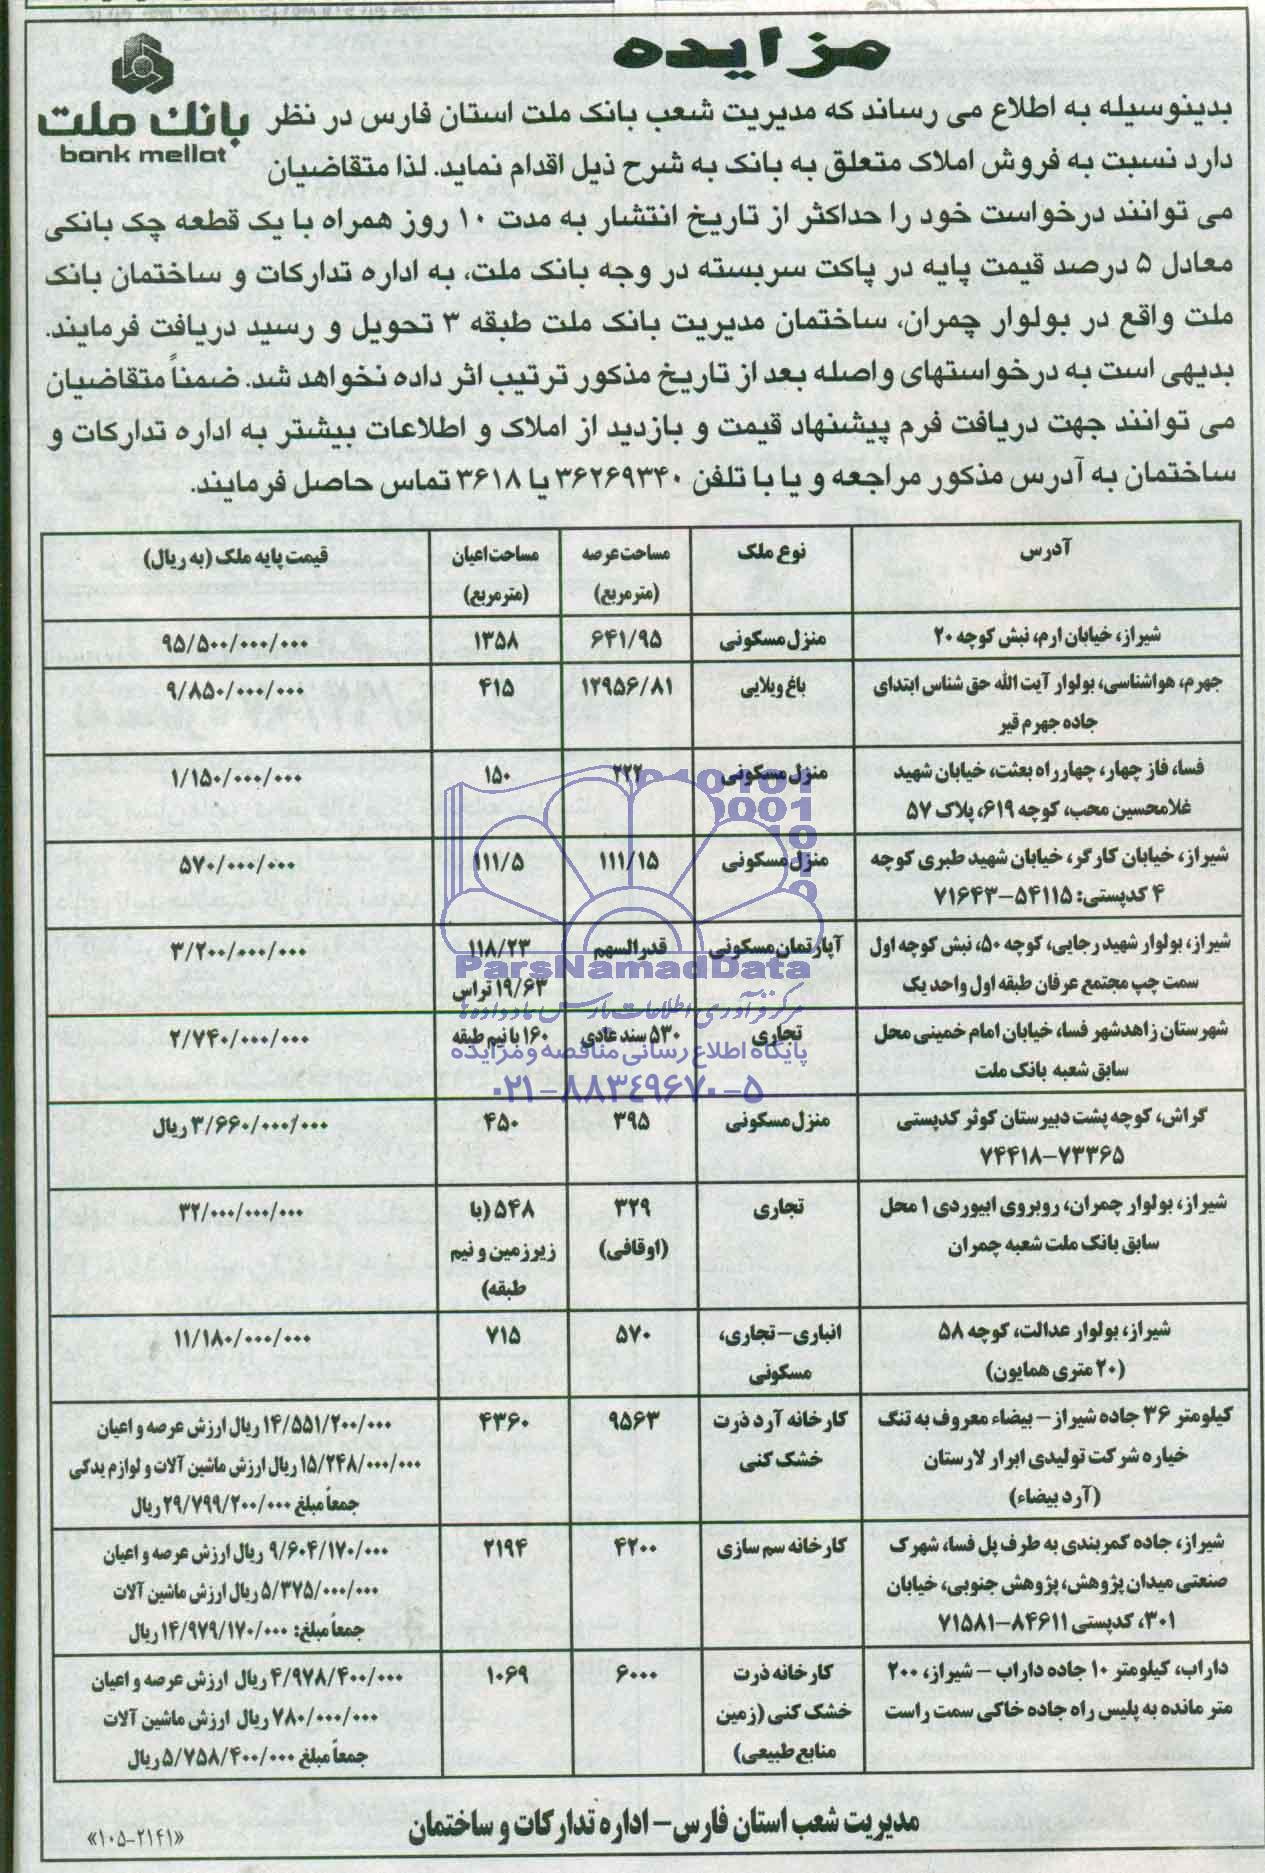 مزایده
بانک ملت
bank mellat
بدینوسیله به اطلاع می رساند که مدیریت شعب بانک ملت استان فارس در نظر
دارد نسبت به فروش املاک متعلق به بانک به شرح ذیل اقدام نماید. لذا متقاضیان
می توانند درخواست خود را حداکثر از تاریخ انتشار به مدت ۱۰ روز همراه با یک قطعه چک بانکی
معادل ۵ درصد قیمت پایه در پاکت سربسته در وجه بانک ملت، به اداره تدارکات و ساختمان بانک
ملت واقع در بولوار چمران، ساختمان مدیریت بانک ملت طبقه ۳ تحویل و رسید دریافت فرمایند.
بدیهی است به درخواستهای واصله بعد از تاریخ مذکور ترتیب اثر داده نخواهد شد. ضمناً متقاضیان
می توانند جهت دریافت فرم پیشنهاد قیمت و بازدید از املاک و اطلاعات بیشتر به اداره تدارکات و
ساختمان به آدرس مذکور مراجعه و یا با تلفن ۳۶۲۶۹۳۴۰ یا ۳۶۱۸ تماس حاصل فرمایند.
آدرس نوع ملک مساحت عرصه مساحت اعیان قیمت پایه ملک (به ریال)
(مترمربع) (مترمربع)
شیراز، خیابان ارم، نبش کوچه ۲۰ منزل مسکونی ۶۴۱/۹۵ ۱۳۵۸ ۹۵/۵۰۰/۰۰۰/۰۰۰
جهرم، هواشناسی، بولوار آیت الله حق شناس ابتدای باغ ویلایی ۱۲۹۵۶/۸۱ ۴۱۵ ۹/۸۵۰/۰۰۰/۰۰۰
جاده جهرم قیر
فسا، فاز چهار، چهارراه بعثت، خیابان شهید منزل مسکونی ۲۲۲ ۱۵۰ ۱/۱۵۰/۰۰۰/۰۰۰
غلامحسین محب، کوچه ۶۱۹، پلاک ۵۷
شیراز، خیابان کارگر، خیابان شهید طبری کوچه منزل مسکونی ۱۱۱/۱۵ ۱۱۱/۵ ۵۷۰/۰۰۰/۰۰۰
۴ کدپستی: ۵۴۱۱۵-۷۱۶۴۳
شیراز، بولوار شهید رجایی، کوچه ۵۰، نبش کوچه اول آپارتمان مسکونی قدرالسهم ۱۱۸/۲۳ ۳/۲۰۰/۰۰۰/۰۰۰
سمت چپ مجتمع عرفان طبقه اول واحد یک ۱۹/۶۳ تراس
شهرستان زاهدشهر فسا، خیابان امام خمینی محل تجاری ۵۳۰ سند عادی ۱۶۰ با نیم طبقه ۲/۷۴۰/۰۰۰/۰۰۰
سابق شعبه بانک ملت
گراش، کوچه پشت دبیرستان کوثر کدپستی منزل مسکونی ۳۹۵ ۴۵۰ ۳/۶۶۰/۰۰۰/۰۰۰ ریال
۷۳۳۶۵-۷۴۴۱۸
شیراز، بولوار چمران، روبروی ابیوردی ۱ محل تجاری ۳۲۹ ۵۴۸ (با ۳۲/۰۰۰/۰۰۰/۰۰۰
سابق بانک ملت شعبه چمران (اوقافی) زیرزمین و نیم
طبقه)
شیراز، بولوار عدالت، کوچه ۵۸ انباری-تجاری، ۵۷۰ ۷۱۵ ۱۱/۱۸۰/۰۰۰/۰۰۰
(۲۰ متری همایون) مسکونی
کیلومتر ۳۶ جاده شیراز - بیضاء معروف به تنگ کارخانه آرد ذرت ۹۵۶۳ ۴۳۶۰ ۱۴/۵۵۱/۲۰۰/۰۰۰ ریال ارزش عرصه و اعیان
خیاره شرکت تولیدی ابرار لارستان خشک کنی ۱۵/۲۴۸/۰۰۰/۰۰۰ ریال ارزش ماشین آلات و لوازم یدکی
(آرد بیضاء) جمعاً مبلغ ۲۹/۷۹۹/۲۰۰/۰۰۰ ریال
شیراز، جاده کمربندی به طرف پل فسا، شهرک کارخانه سم سازی ۴۲۰۰ ۲۱۹۴ ۹/۶۰۴/۱۷۰/۰۰۰ ریال ارزش عرصه و اعیان
صنعتی میدان پژوهش، پژوهش جنوبی، خیابان ۵/۳۷۵/۰۰۰/۰۰۰ ریال ارزش ماشین آلات
۳۰۱، کدپستی ۸۴۶۱۱-۷۱۵۸۱ جمعاً مبلغ: ۱۴/۹۷۹/۱۷۰/۰۰۰ ریال
داراب، کیلومتر ۱۰ جاده داراب - شیراز، ۲۰۰ کارخانه ذرت ۶۰۰۰ ۱۰۶۹ ۴/۹۷۸/۴۰۰/۰۰۰ ریال ارزش عرصه و اعیان
متر مانده به پلیس راه جاده خاکی سمت راست خشک کنی (زمین ۷۸۰/۰۰۰/۰۰۰ ریال ارزش ماشین آلات
منابع طبیعی) جمعاً مبلغ ۵/۷۵۸/۴۰۰/۰۰۰ ریال
ParsNamadData
مرکز فرآوری اطلاعات پارس نماد داده ها
پایگاه اطلاع رسانی مناقصه و مزایده
۰۲۱-۸۸۳۴۹۶۷۰-۵
مدیریت شعب استان فارس - اداره تدارکات و ساختمان
«۱۰۵-۲۱۴۱»